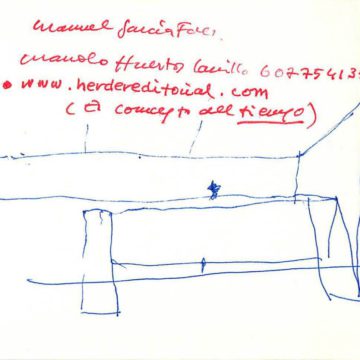 Manuel García
Manolo Huertos Carrillo 60775413
• www.herdereditorial.com
(El concepto del tiempo)